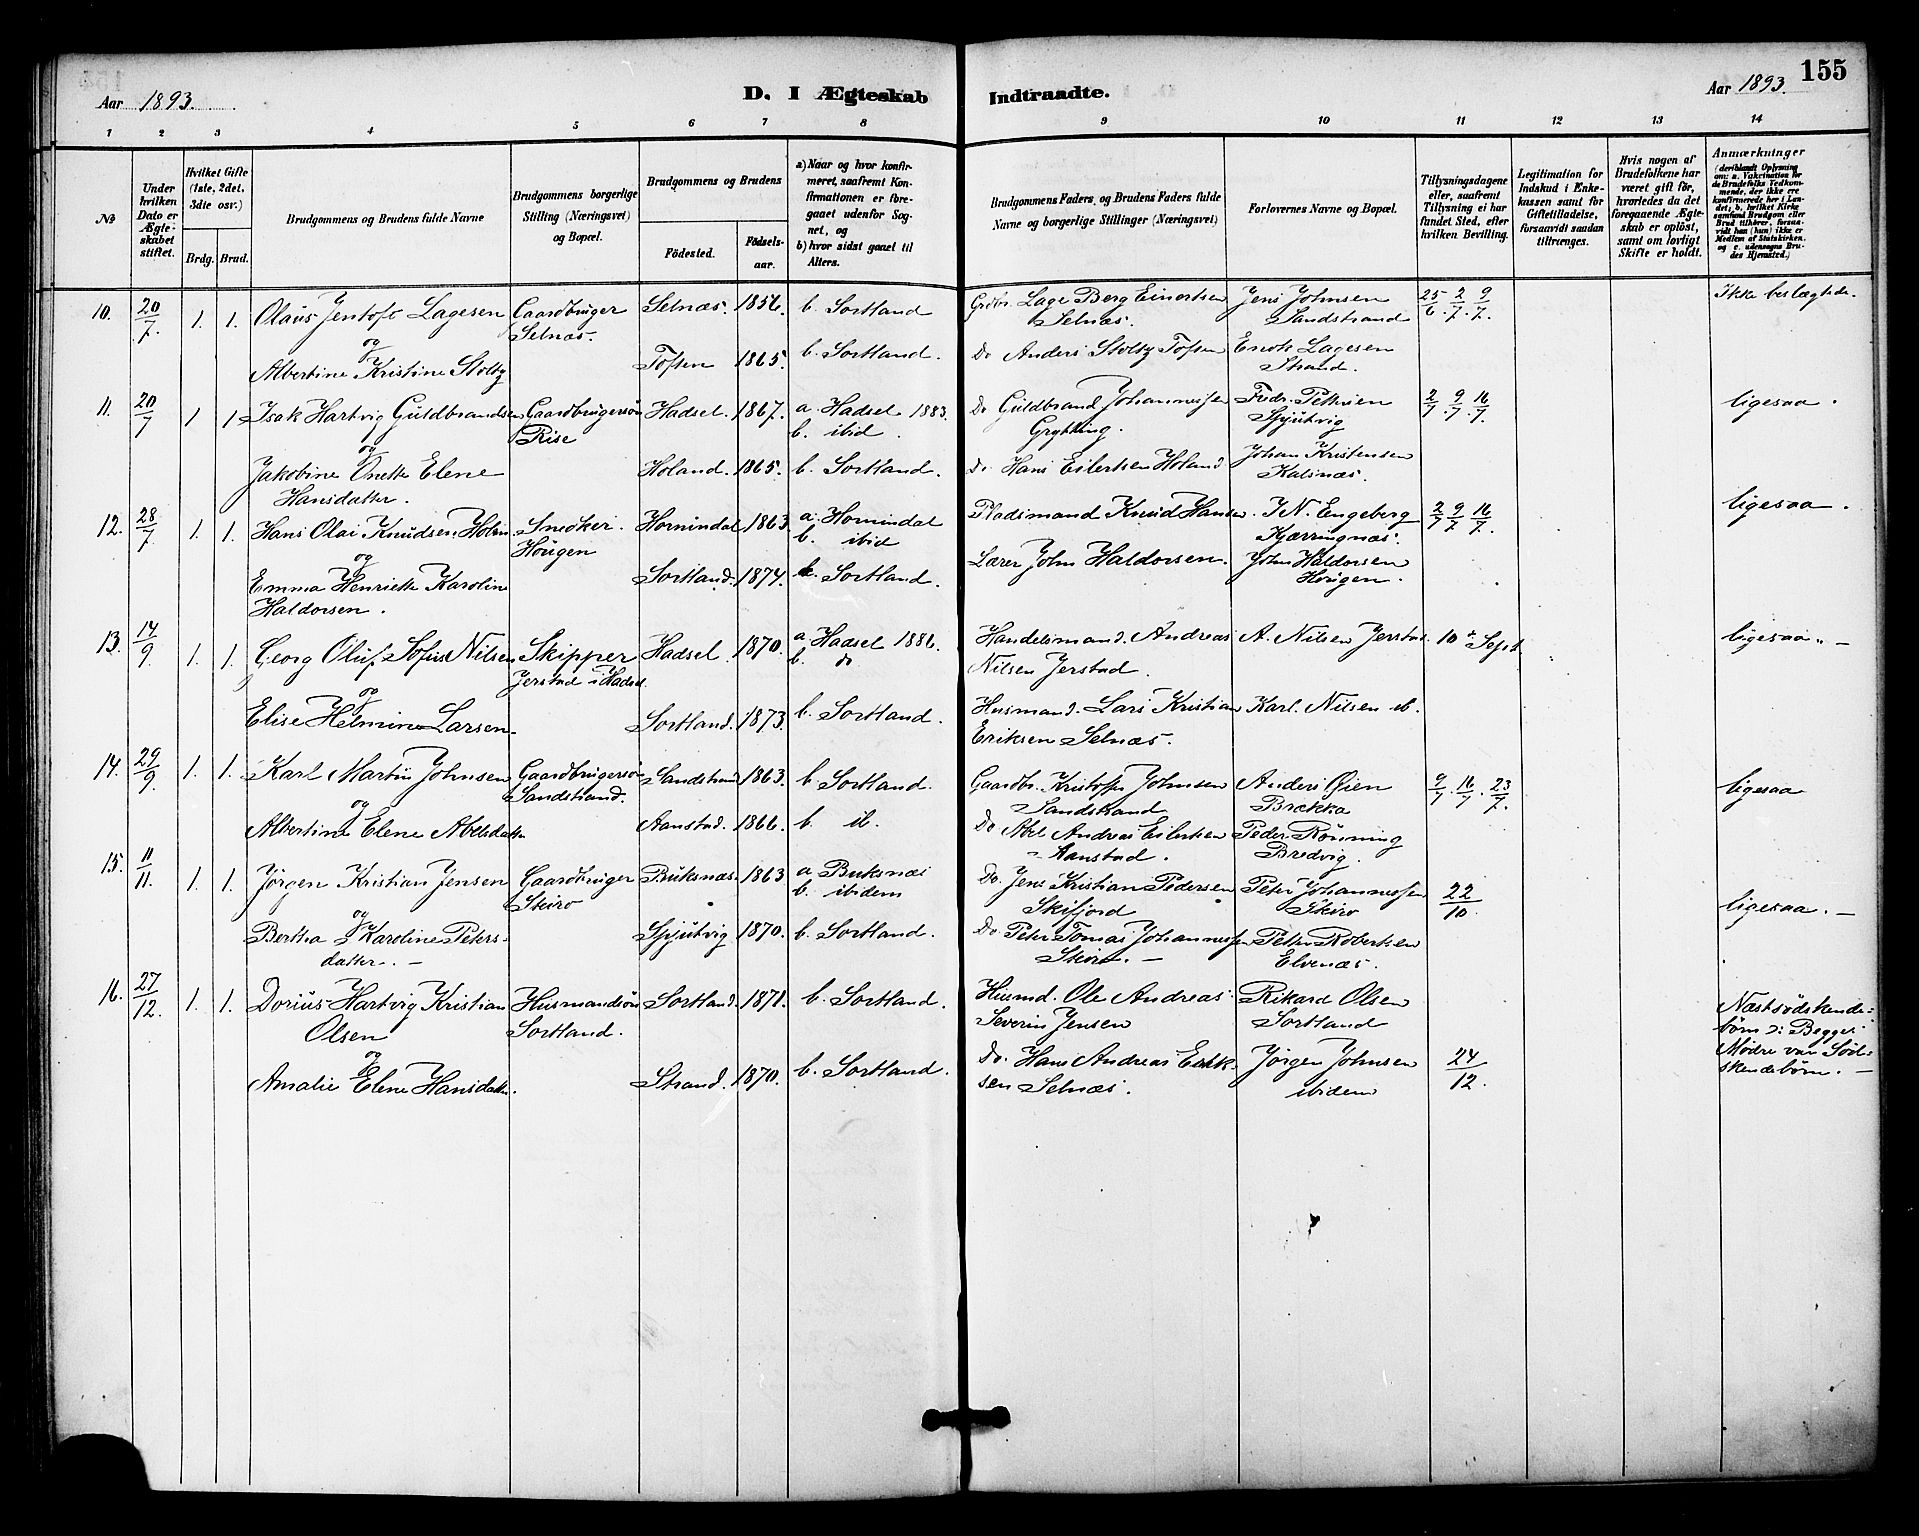 155
Aar 1893.
D. I Ægteskab Indtraadte.
Aar 1893.
1 2 3 4 5 6 7 8 9 10 11 12 13 14
№
Under hvilken Dato er Ægteskabet stiftet.
Hvilket Gifte (1ste, 2det, 3die osv.)
Brdg. Brud.
Brudgommens og Brudens fulde Navne
Brudgommens borgerlige Stilling (Næringsvei) og Bopæl.
Brudgommens og Brudens
Födested.
Födselsaar.
a) Naar og hvor konfirmeret, saafremt Konfirmationen er foregaaet udenfor Sognet, og
b) hvor sidst gaaet til Alters.
Brudgommens Faders, og Brudens Faders fulde Navne og borgerlige Stillinger (Næringsvei)
Forlovernes Navne og Bopæl.
Tillysningsdagene eller, saafremt Tillysning ei har fundet Sted, efter hvilken Bevilling.
Legitimation for Indskud i Enkekassen samt for Giftetilladelse, forsaavidt saadan tiltrænges.
Hvis nogen af Brudefolkene har været gift för, hvorledes da det foregaaende Ægteskab er oplöst, samt om lovligt Skifte er holdt.
Anmærkninger
(deriblandt Oplysning om: a. Vakcination for de Brudefolks Vedkommende, der ikke ere konfirmerede her i Landet, b. hvilket Kirkesamfund Brudgom eller Brud tilhörer, forsaavidt han (hun) ikke er Medlem af Statskirken, og c. udensogns Brudes Hjemsted.)
10. 20/7. 1. 1. Olaus Jentoft Lagesen Gaardbruger Selnæs. 1856. b. Sortland Grdbr. Lage Berg Einertsen Jens Johnsen 25/6. 2/7. 9/7. Ikke beslægtede.
Selnæs. Selnæs. Sandstrand
og
Albertine Kristine Stoltz Toften 1865. b. Sortland. Do Anders Stoltz Toften Enok Lagesen
Strand.
11. 20/7 1 1 Isak Hartvig Guldbrandsen Gaardbrugersön Hadsel. 1867. a. Hadsel 1883. Do Guldbrand Johannessen Fredr. Pettersen 2/7. 9/7. 16/7. ligesaa.
Rise b. ibid. Grytting. Spjutvig
og
Jakobine Anette Elene Holand. 1865. b. Sortland. Do Hans Eilertsen Holand Johan Kristensen
Hansdatter. Kalsnæs.
12. 28/7. 1. 1. Hans Olai Knudsen Holm Snedker. Hornindal 1863. a. Hornindal Pladsmand Knud Hansen. J. N. Engeberg 2/7 9/7. 16/7. ligesaa.
Hougen b. ibid Kjærringnæs.
og
Emma Henriette Karoline Sortland. 1874. b. Sortland. Lærer John Haldorsen. John Haldorsen
Haldorsen. Hougen.
13. 14/9. 1. 1. Georg Oluf Sofus Nilsen Skipper Hadsel. 1870. a. Hadsel 1886. Handelsmand. Andreas A. Nilsen Jerstad. 10de Sept ligesaa. —
Jerstad i Hadsel. b. do Nilsen Jerstad.
og
Elise Helmine Larsen. Sortland. 1873. b. Sortland. Husmand. Lars Kristian Karl. Nilsen ib.
Eriksen Selnæs.
14. 29/9. 1. 1. Karl Martin Johnsen Gaardbrugersön Sandstrand 1863. b. Sortland. Gaardbr. Kristoffer Johnsen Anders Øien 9/7. 16/7. 23/7. ligesaa
Sandstrand. Sandstrand Brækka
og
Albertine Elene Abelsdatter Aanstad. 1866. b. ib. Do Abel Andreas Eilertsen Peder Rönning
Aanstad. Bredvig.
15. 11/11. 1. 1. Jörgen Kristian Jensen Gaardbruger Buksnæs. 1863 a Buksnæs Do. Jens Kristian Pedersen Peter Johannessen 22/10. ligesaa. —
Steiro b. ibidem Skifjord Steiro
og
Bertha Karoline Peters- Spjutvig 1870. b. Sortland. Do. Peter Tomas Johannessen Petter Robertsen
datter. — Steiro. — Elvenæs.
16. 27/12. 1. 1. Dorius Hartvig Kristian Husmandssön Sortland. 1871. b. Sortland. Husmd. Ole Andreas Rikard Olsen Næstsödskende-
Olsen Sortland. Severin Jensen Sortland börn ɔ: Begges
og Mödre var Söd-
Amalie Elene Hansdatter. Strand. 1870. b. Sortland. Do. Hans Andreas Erik- Jörgen Johnsen 24/12. skendebörn. —
sen Selnæs. ibidem